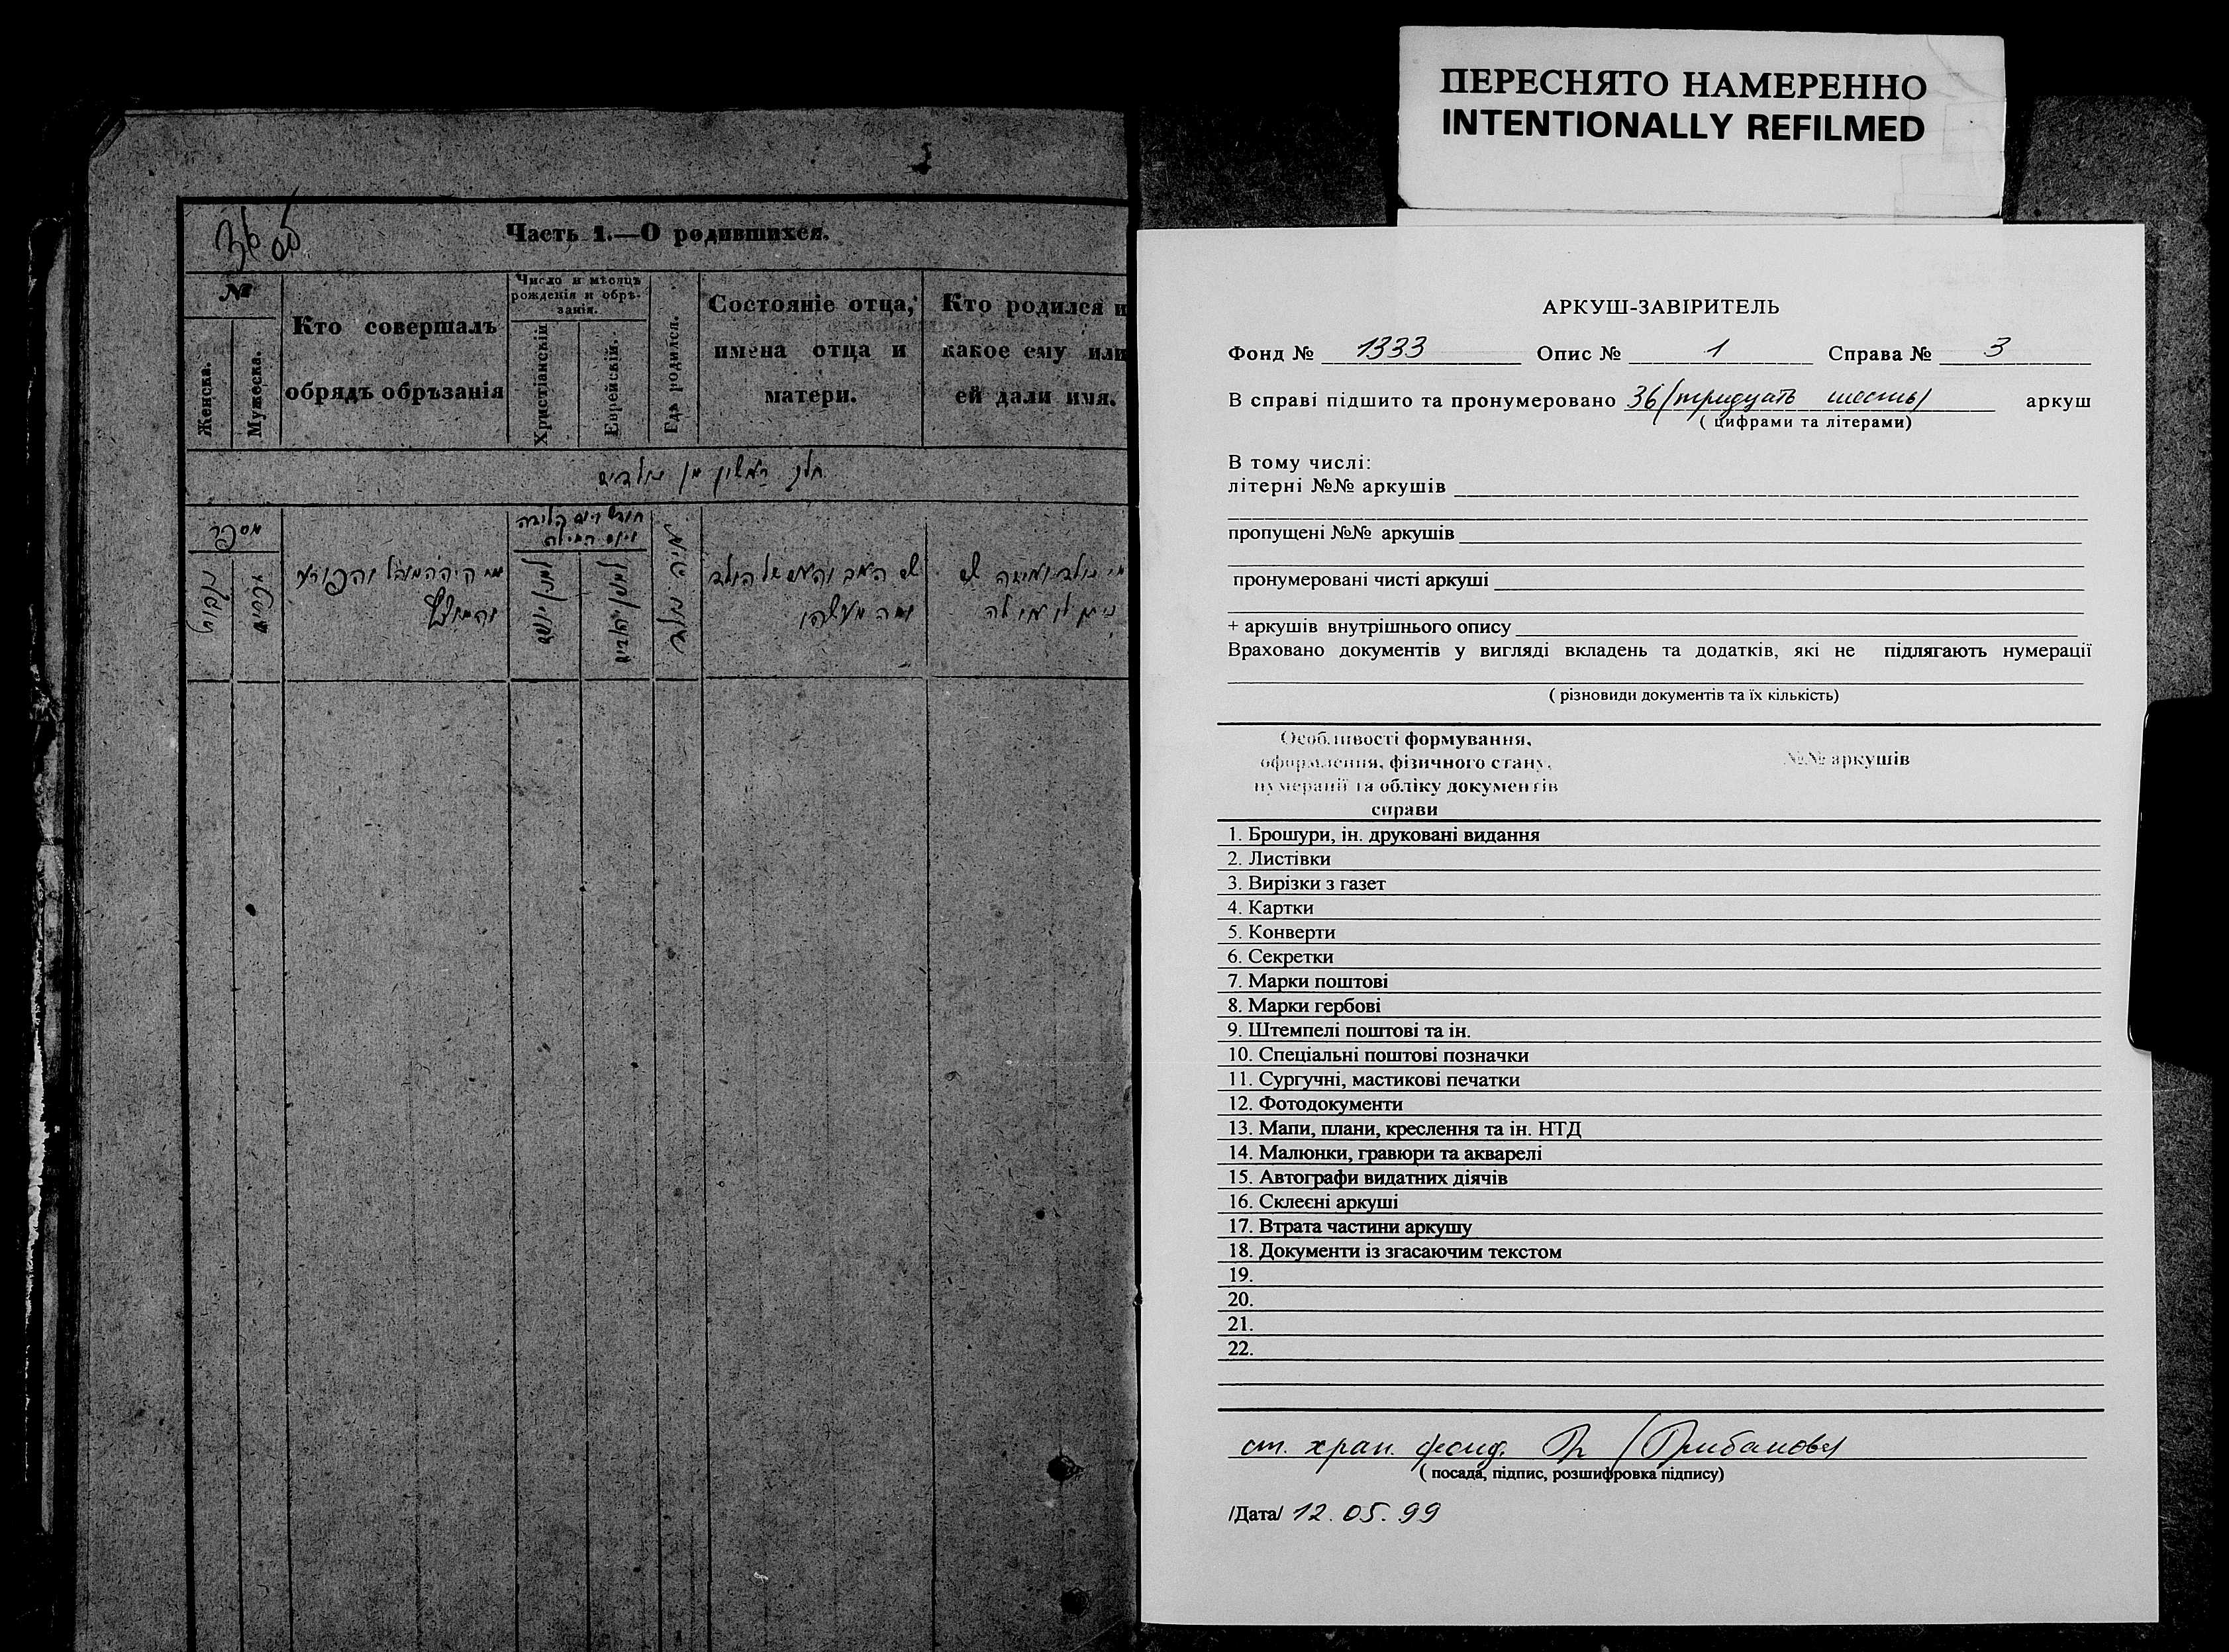 ПЕРЕСНЯТО НАМЕРЕННО
INTENTIONALLY REFILMED
36 об
Часть 1.—О родившихся.
№
Женска.
Мужеска.
Кто совершалъ
обрядъ обрѣзанія
Число и мѣсяцъ
рожденія и обрѣ-
занія.
Христіанскій
Еврейскій.
Гдѣ родился.
Состояніе отца,
имена отца и
матери.
Кто родился и
какое ему или
ей дали имя.
חלק ראשון מן נולדים
מספר
נקבות
זכרים
מי היה המוהל והפורע
חודש ויום הלידה
ויום המילה
למנין יהודים
איה נולד
שם האב והאם של הנולד
מי נולד ומה שם
ניתן לו או לה
АРКУШ-ЗАВІРИТЕЛЬ
Фонд № 1333 Опис № 1 Справа № 3
В справі підшито та пронумеровано 36 (тридцать шесть) аркуш
( цифрами та літерами)
В тому числі:
літерні №№ аркушів
пропущені №№ аркушів
пронумеровані чисті аркуші
+ аркушів внутрішнього опису
Враховано документів у вигляді вкладень та додатків, які не підлягають нумерації
( різновиди документів та їх кількість)
Особливості формування,
оформлення, фізичного стану,
нумерації та обліку документів
справи
№№ аркушів
1. Брошури, ін. друковані видання
2. Листівки
3. Вирізки з газет
4. Картки
5. Конверти
6. Секретки
7. Марки поштові
8. Марки гербові
9. Штемпелі поштові та ін.
10. Спеціальні поштові позначки
11. Сургучні, мастикові печатки
12. Фотодокументи
13. Мапи, плани, креслення та ін. НТД
14. Малюнки, гравюри та акварелі
15. Автографи видатних діячів
16. Склеєні аркуші
17. Втрата частини аркушу
18. Документи із згасаючим текстом
19.
20.
21.
22.
ст. хран. фонд.
( посада, підпис, розшифровка підпису)
/Дата/ 12. 05. 99